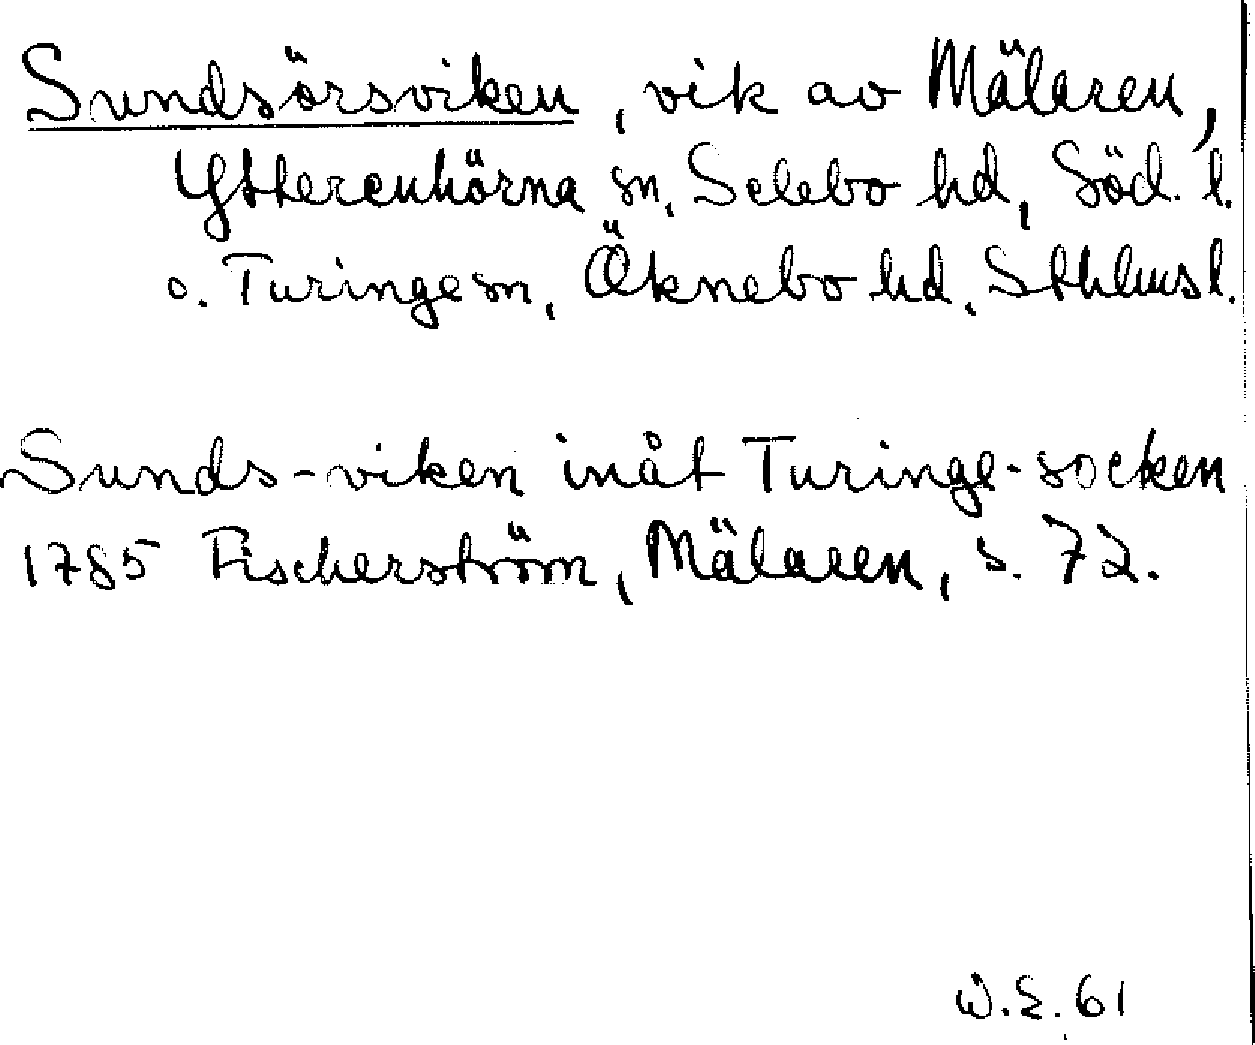 Sundsörsviken, vik av Mälaren,
Ytterenhörna sn, Selebo hd, Söd. l.
o. Turinge sn, Öknebo hd, Sthlms l.
Sunds-viken inåt Turinge-socken
1785 Fischerström, Mälaren, s. 72.
W.E. 61